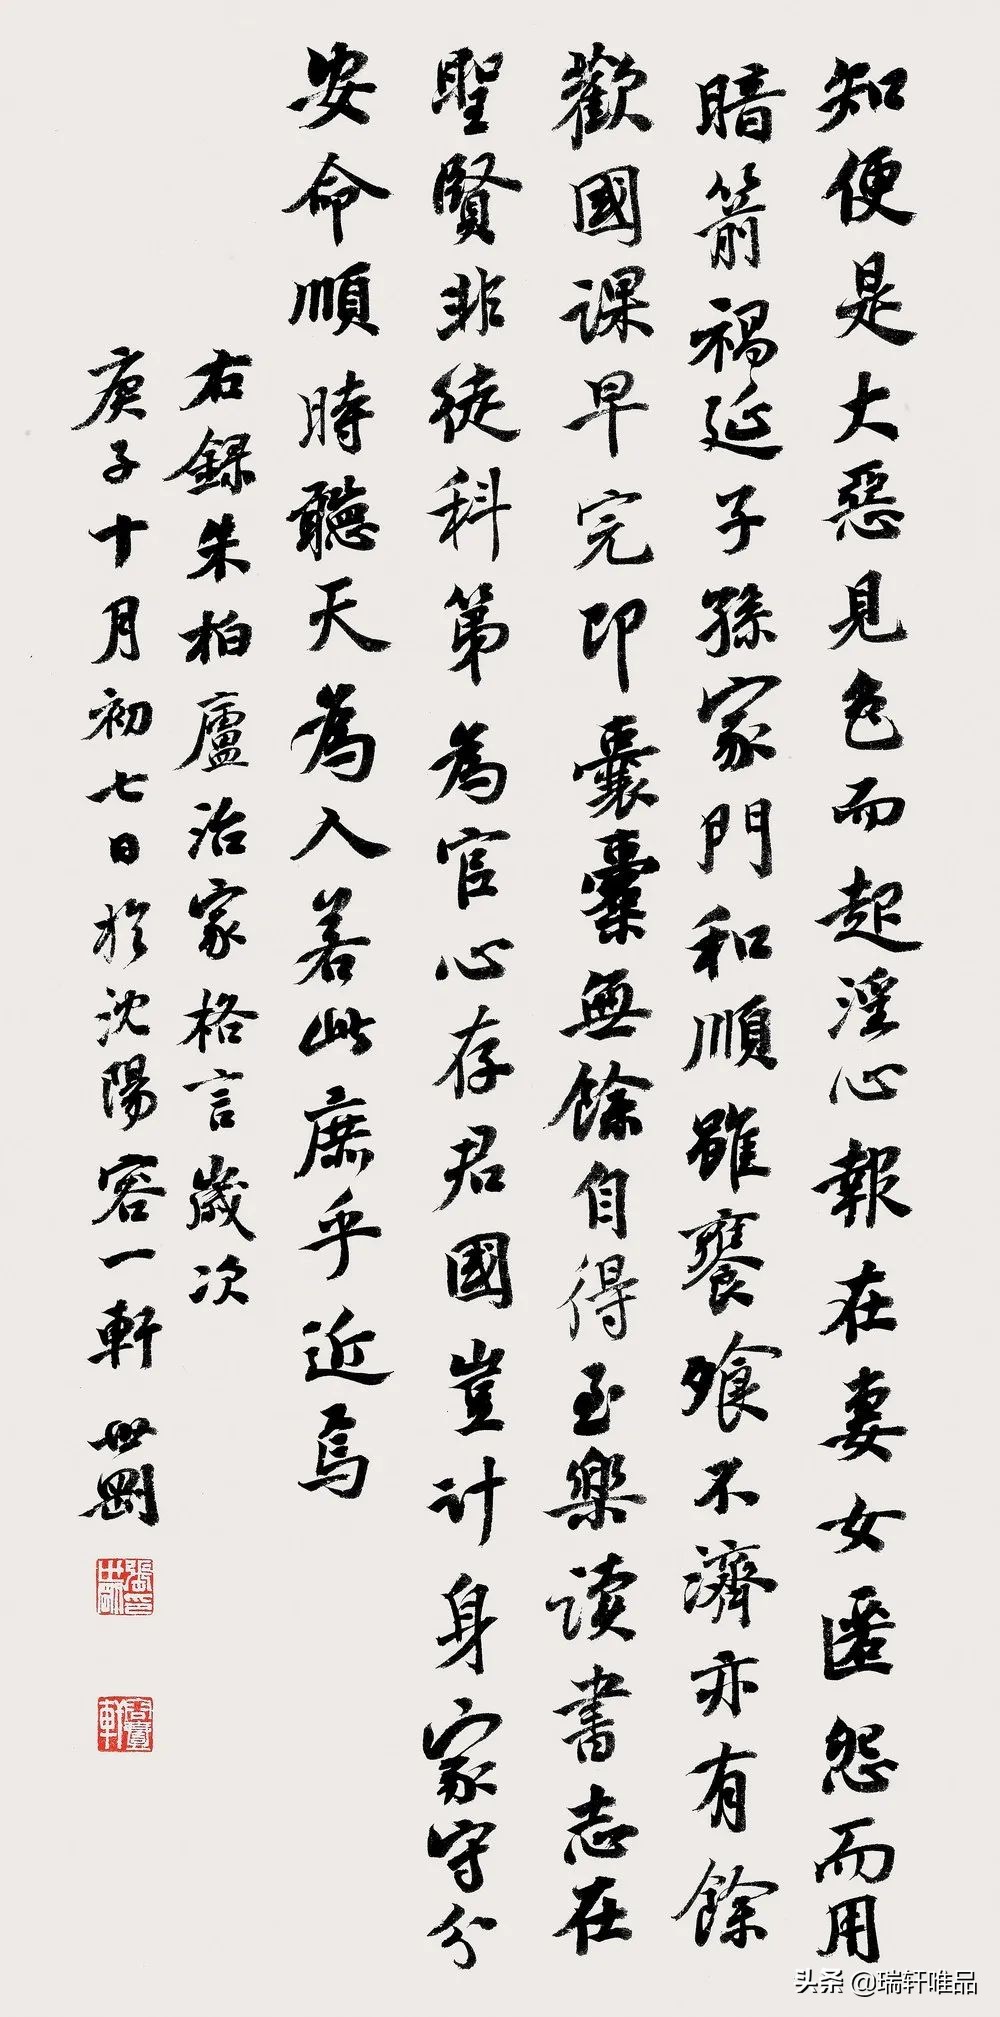 知便是大惡見色而起淫心報在妻女匿怨而用
暗箭禍延子孫家門和順雖饔飧不濟亦有餘
歡國課早完即囊橐無餘自得至樂读書志在
聖賢非徒科第為官心存君國豈計身家守分
安命順時聽天為人若此庶乎近焉
右録朱柏廬治家格言歲次
庚子十月初七日於沈陽容一軒 世剛
头条 @瑞轩唯品